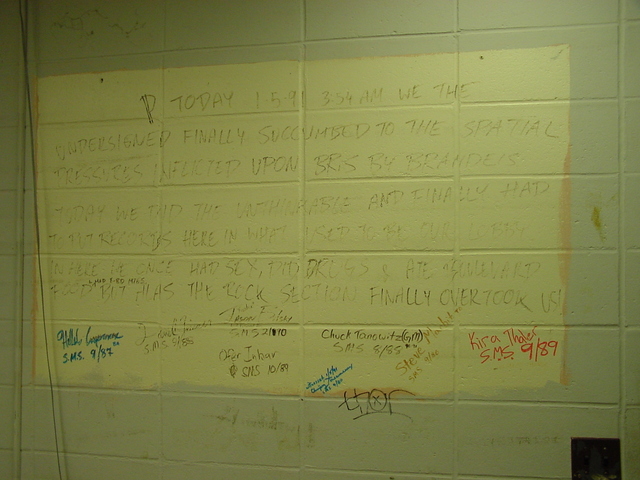 TODAY 1 5 91 3:54 AM WE THE
UNDERSIGNED FINALLY SUCCUMBED TO THE SPATIAL
PRESSURES INFLICTED UPON BRS BY BRANDEIS
TODAY WE DID THE UNTHINKABLE AND FINALLY HAD
TO PUT RECORDS HERE IN WHAT USED TO BE OUR LOBBY
IN HERE WE ONCE HAD SEX, DID DRUGS & ATE BOULEVARD
FOOD BUT ALAS THE ROCK SECTION FINALLY OVERTOOK US!
S.M.S. 9/87
S.M.S. 9/88
S.M.S
Ofer Inbar
SMS 10/89
Chuck Tanowitz (GM)
S.M.S 8/85
Steve
Kira Thaler
S.M.S. 9/89